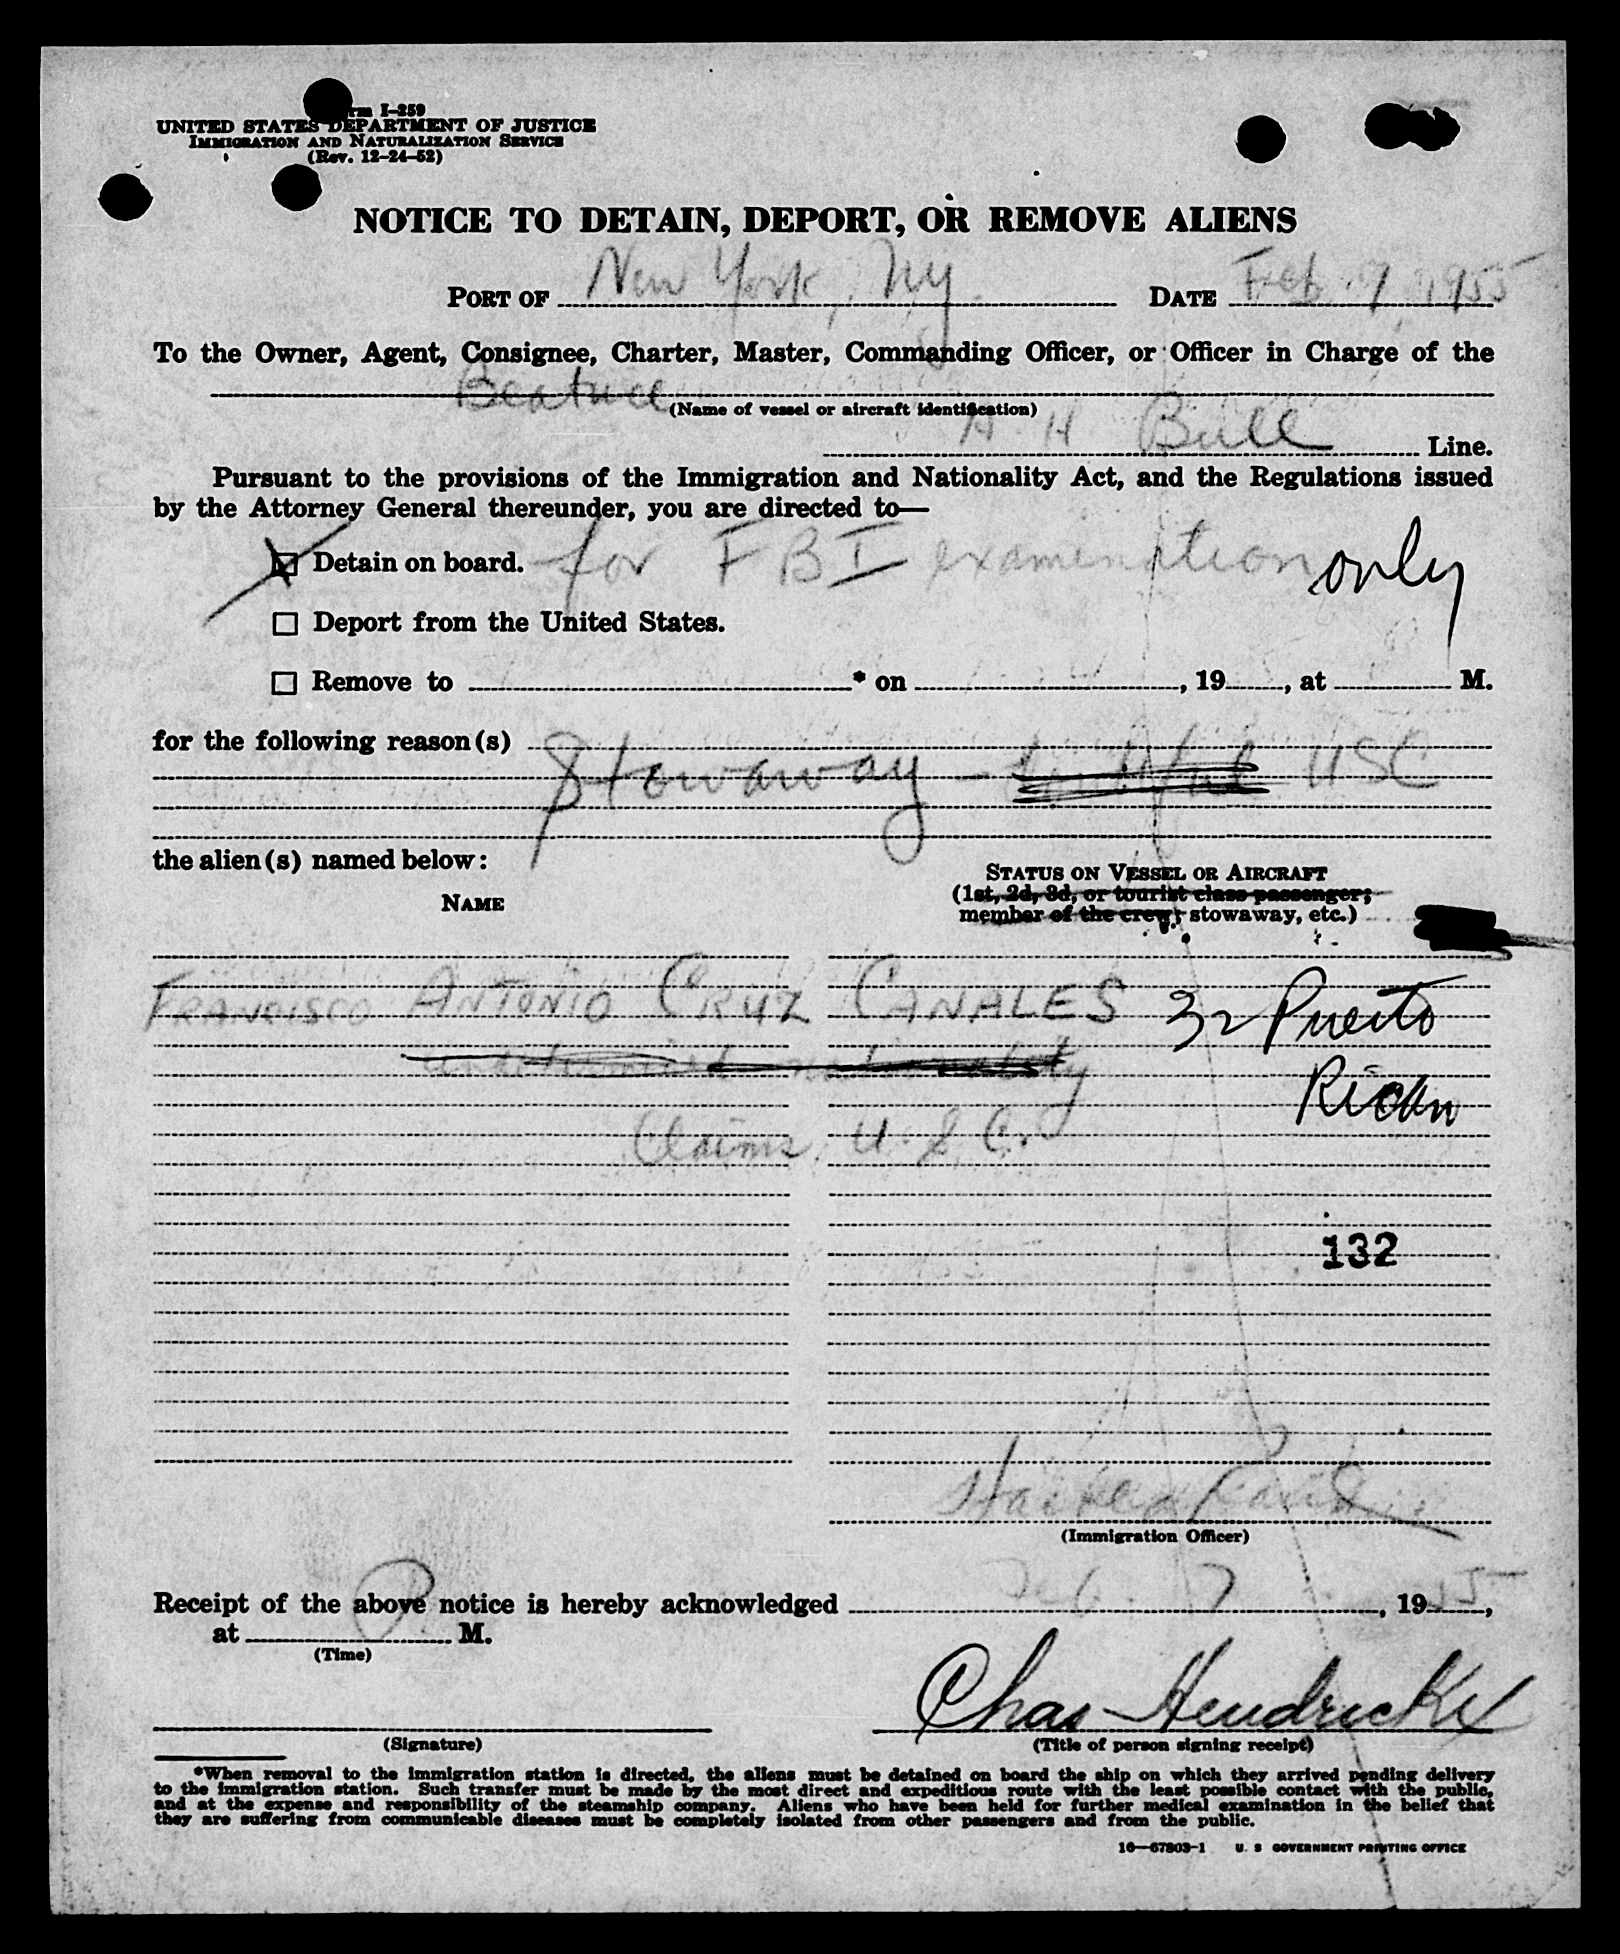 Form I-259
UNITED STATES DEPARTMENT OF JUSTICE
IMMIGRATION AND NATURALIZATION SERVICE
(Rev. 12-24-52)
NOTICE TO DETAIN, DEPORT, OR REMOVE ALIENS
PORT OF New York, NY. DATE Feb. 7, 1955
To the Owner, Agent, Consignee, Charter, Master, Commanding Officer, or Officer in Charge of the
Beatrice
(Name of vessel or aircraft identification)
A H Bull Line.
Pursuant to the provisions of the Immigration and Nationality Act, and the Regulations issued
by the Attorney General thereunder, you are directed to—
Detain on board. for FBI examination only
Deport from the United States.
Remove to * on , 19 , at M.
for the following reason(s)
Stowaway - USC
the alien(s) named below:
STATUS ON VESSEL OR AIRCRAFT
(1st, 2d, 3d, or tourist class passenger;
NAME
member of the crew; stowaway, etc.)
FRANCISCO ANTONIO CRUZ CANALES 32 Puerto
Rican
undetermined nationality
Claims U.S.C.
132
(Immigration Officer)
Receipt of the above notice is hereby acknowledged Feb. 7, 1955,
at P. M.
(Time)
Chas Hendrickx
(Signature) (Title of person signing receipt)
*When removal to the immigration station is directed, the aliens must be detained on board the ship on which they arrived pending delivery
to the immigration station. Such transfer must be made by the most direct and expeditious route with the least possible contact with the public,
and at the expense and responsibility of the steamship company. Aliens who have been held for further medical examination in the belief that
they are suffering from communicable diseases must be completely isolated from other passengers and from the public.
16—67803-1 U. S GOVERNMENT PRINTING OFFICE